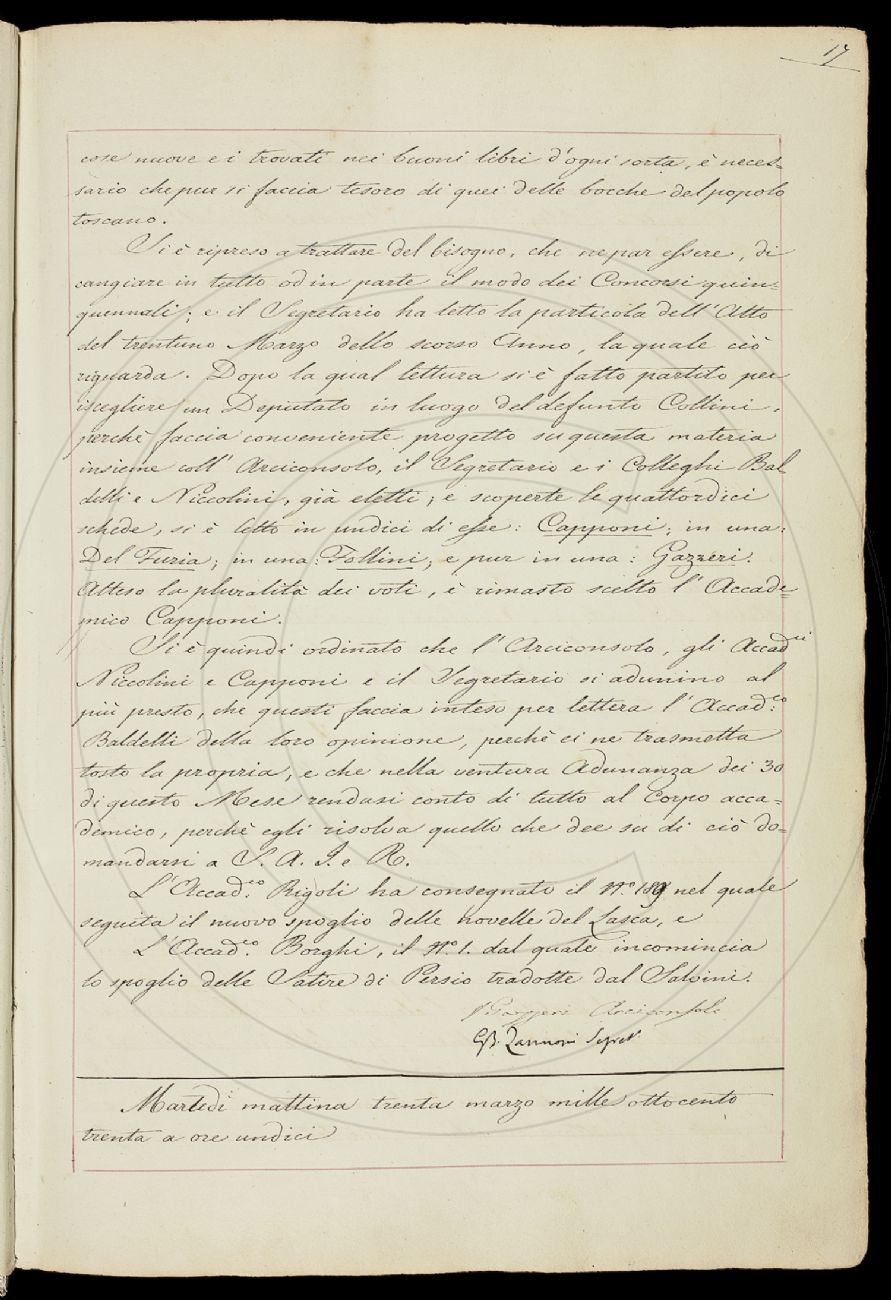 17
cose nuove e i trovati nei buoni libri d'ogni sorta, è neces=
sario che pur si faccia tesoro di quei delle bocche del popolo
toscano.
Si è ripreso a trattare del bisogno, che ne par essere, di
cangiare in tutto od in parte il modo dei Concorsi quin=
quennali; e il Segretario ha letto la particola dell'Atto
del trentuno Marzo dello scorso Anno, la quale ciò
riguarda. Dopo la qual lettura si è fatto partito per
iscegliere un Deputato in luogo del defunto Collini,
perchè faccia conveniente progetto su questa materia
insieme coll'Arciconsolo, il Segretario e i Colleghi Bal
delli e Niccolini, già eletti; e scoperte le quattordici
schede, si è letto in undici di esse: Capponi; in una:
Del Furia; in una: Follini; e pur in una: Gazzeri.
Atteso la pluralità dei voti, è rimasto scelto l'Accade=
mico Capponi.
Si è quindi ordinato che l'Arciconsolo, gli Accad.ci
Niccolini e Capponi e il Segretario si adunino al
più presto, che questi faccia inteso per lettera l'Accad.co
Baldelli della loro opinione, perchè ci ne trasmetta
tosto la propria, e che nella ventura Adunanza dei 30
di questo Mese rendasi conto di tutto al Corpo acca=
demico, perchè egli risolva quello che dee su di ciò do=
mandarsi a S. A. I. e R.
L'Accad.co Rigoli ha consegnato il N.o 189 nel quale
seguita il nuovo spoglio delle novelle del Lasca, e
L'Accad.co Borghi, il N.o 1. dal quale incomincia
lo spoglio delle Satire di Persio tradotte dal Salvini.
Gazzeri Arciconsolo
GB. Zannoni Segret.
Martedì mattina trenta marzo mille ottocento
trenta a ore undici